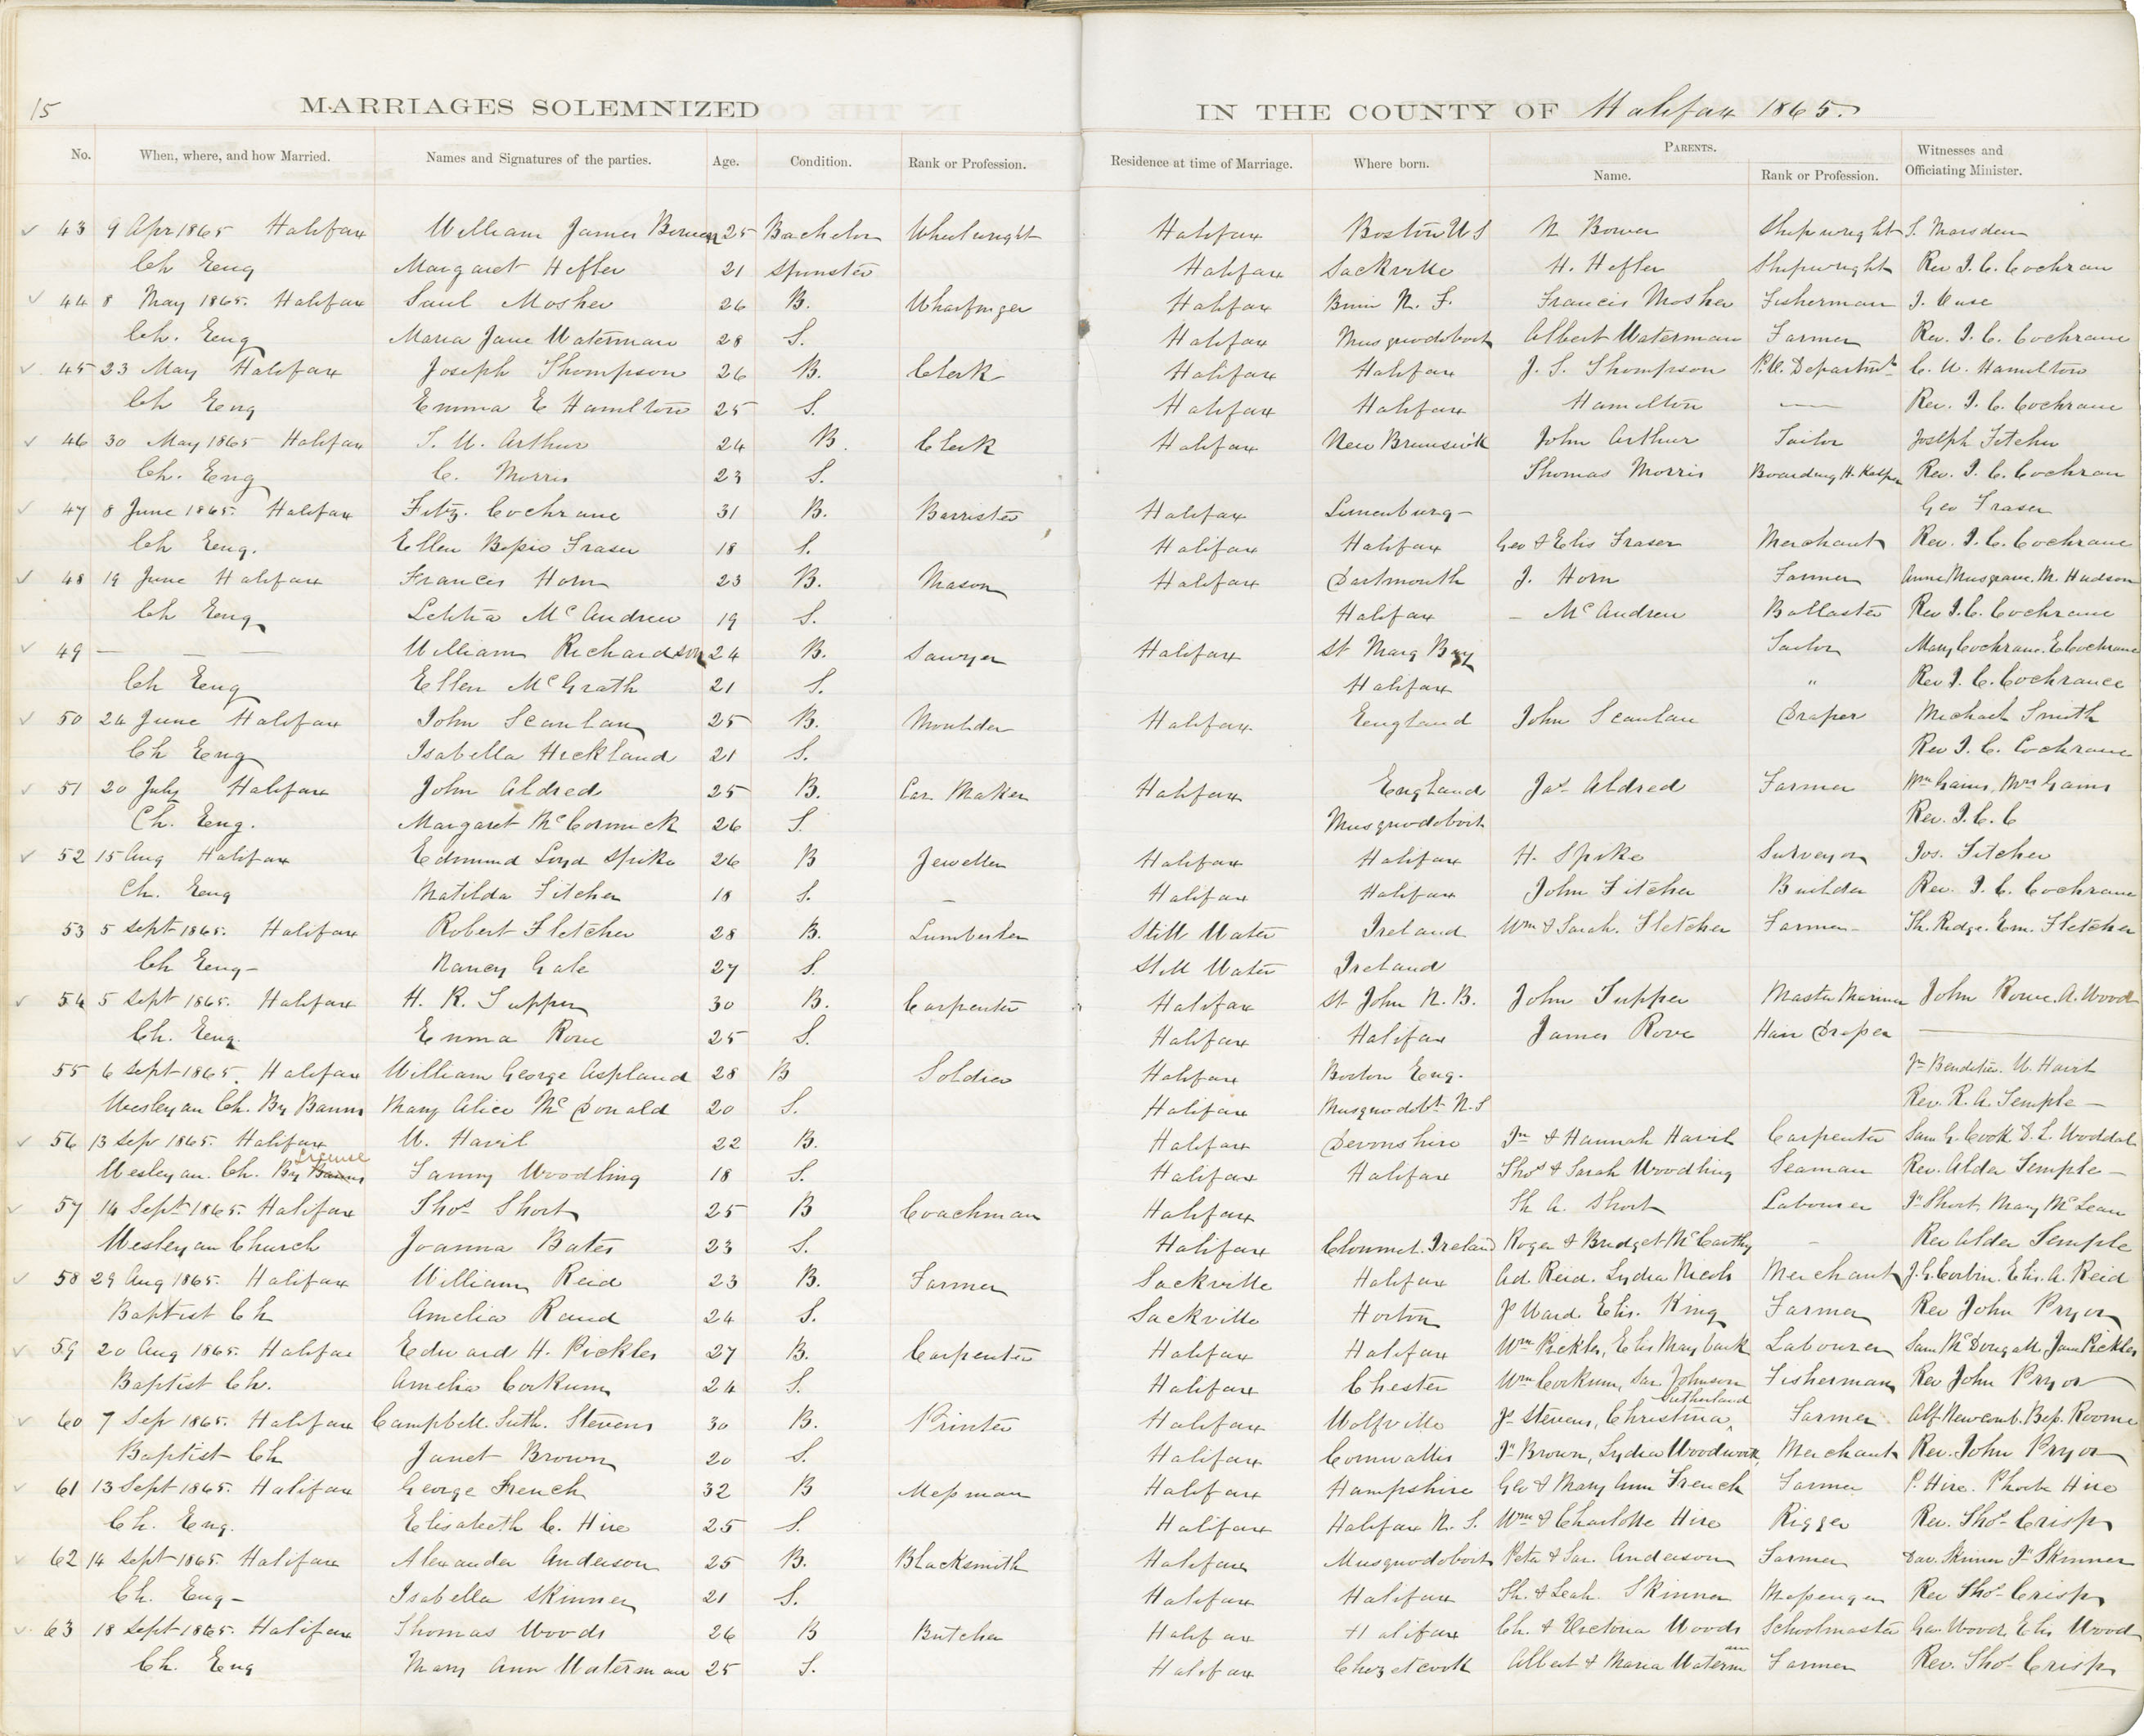 15
MARRIAGES SOLEMNIZED IN THE COUNTY OF Halifax 1865.
No. When, where, and how Married. Names and Signatures of the parties. Age. Condition. Rank or Profession. Residence at time of Marriage. Where born. PARENTS. Name. Rank or Profession. Witnesses and Officiating Minister.
43 9 Apr 1865 Halifax William James Bowen 25 Bachelor Wheelwright Halifax Boston US N Bower Shipwright S. Marsden
Ch Eng Margaret Hefler 21 Spinster Halifax Sackville H. Hefler Shipwright Rev J. C. Cochran
44 8 May 1865. Halifax Saul Mosher 26 B. Wharfinger Halifax Burin N. F. Francis Mosher Fisherman J. Cuse
Ch. Eng Maria Jane Waterman 28 S. Halifax Musquodoboit Albert Waterman Farmer Rev. J. C. Cochrane
45 23 May Halifax Joseph Thompson 26 B. Clerk Halifax Halifax J. S. Thompson P.O. Departmt C. W. Hamilton
Ch Eng Emma E Hamilton 25 S. Halifax Halifax Hamilton — Rev. J. C. Cochrane
46 30 May 1865 Halifax T. W. Arthur 24 B. Clerk Halifax New Brunswick John Arthur Tailor Joseph Fitcher
Ch. Eng C. Morris 23 S. Thomas Morris Boarding H. Keeper Rev. J. C. Cochran
47 8 June 1865. Halifax Fitz. Cochrane 31 B. Barrister Halifax Lunenburg Geo Fraser
Ch Eng. Ellen Bessie Fraser 18 S. Halifax Halifax Geo & Elis Fraser Merchant Rev. J. C. Cochrane
48 19 June Halifax Frances Horn 23 B. Mason Halifax Dartmouth J. Horn Farmer Anne Musgrave, M. Hudson
Ch Eng Letitia McAndrew 19 S. Halifax — McAndrew Ballaster Rev J. C. Cochrane
49 — — — William Richardson 24 B. Sawyer Halifax St Marg Bay Tailor Mary Cochrane. E Cochrane
Ch Eng Ellen McGrath 21 S. Halifax " Rev J. C. Cochrane
50 24 June Halifax John Scanlan 25 B. Moulder Halifax England John Scanlan Draper Michael Smith
Ch Eng Isabella Hickland 21 S. Rev J. C. Cochrane
51 20 July Halifax John Aldred 25 B. Car. Maker Halifax England Jas Aldred Farmer Wm Gains, Mrs Gains
Ch. Eng. Margaret McCormick 26 S. Musquodoboit Rev. J. C. C
52 15 Aug Halifax Edmund Loyd Spike 26 B Jeweller Halifax Halifax H. Spike Surveyor Jos. Fitcher
Ch. Eng Matilda Fitcher 18 S. — Halifax Halifax John Fitcher Builder Rev. J. C. Cochrane
53 5 Sept 1865. Halifax Robert Fletcher 28 B. Lumberer Still Water Ireland Wm & Sarah. Fletcher Farmer Th. Ridge. Em. Fletcher
Ch Eng Nancy Gale 27 S. Still Water Ireland
54 5 Sept 1865. Halifax H. R. Tupper 30 B. Carpenter Halifax St John N. B. John Tupper Master Mariner John Rowe. A. Wood
Ch. Eng. Emma Rowe 25 S. Halifax Halifax James Rove Hair Draper
55 6 Sept 1865. Halifax William George Aspland 28 B Soldier Halifax Boston Eng. W. Havil
Wesleyan Ch. By Banns Mary Alice McDonald 20 S. Halifax Musquodobt N.S Rev. R. A. Temple
56 13 Sep 1865. Halifax W. Havil 22 B. Halifax Devonshire Jn & Hannah Havil Carpenter Sam G. Cook D. L. Woddal
License
Wesleyan. Ch. By Banns Fanny Woodling 18 S. Halifax Halifax Thos & Sarah Woodling Seaman Rev. Alder Temple
57 14 Sept 1865. Halifax Thos Short 25 B Coachman Halifax Th A. Short Labourer Jn Short, Mary McLean
Wesleyan Church Joanna Bates 23 S. Halifax Clonmel. Ireland Roger & Bridget McCarthy — Rev Alder Temple
58 29 Aug 1865. Halifax William Reid 23 B. Farmer Sackville Halifax Ad. Reid. Lydia Nicols Merchant J. G. Corbin. Elis. A. Reid
Baptist Ch Amelia Rand 24 S. Sackville Horton Jn Ward. Elis. King Farmer Rev John Pryor
59 20 Aug 1865. Halifax Edward H. Pickles 27 B. Carpenter Halifax Halifax Wm Pickles, Elis Mayback Labourer Sam McDougall Jam Pickles
Baptist Ch. Amelia Corkum 24 S. Halifax Chester Wm Corkum, Sar. Johnson Fisherman Rev John Pryor
Sutherland
60 7 Sep 1865. Halifax Campbell. Suth. Stevens 30 B. Printer Halifax Wolfville Jn Stevens, Christina Farmer Alf. Newcomb. Bess. Roome
Baptist Ch Janet Brown 20 S. Halifax Cornwallis Jn Brown, Lydia Woodwork Merchant Rev. John Pryor
61 13 Sept 1865. Halifax George French 32 B Messman Halifax Hampshire Geo & Mary Ann French Farmer P. Hire. Phoebe Hire
Ch. Eng. Elisabeth C. Hire 25 S. Halifax Halifax N. S. Wm & Charlotte Hire Rigger Rev. Thos Crisp
62 14 Sept 1865. Halifax Alexander Anderson 25 B. Blacksmith Halifax Musquodoboit Peter & Sar. Anderson Farmer Dav. Skinner Jn Skinner
Ch. Eng Isabella Skinner 21 S. Halifax Halifax Th. & Leah. Skinner Messenger Rev Thos Crisp
63 18 Sept 1865. Halifax Thomas Woods 26 B Butcher Halifax Halifax Ch. & Victoria Woods Schoolmaster Geo. Woods Elis Wood
Ch. Eng Mary Ann Waterman 25 S. Halifax Chezetcook Albert & Maria Waterman Farmer Rev. Thos Crisp